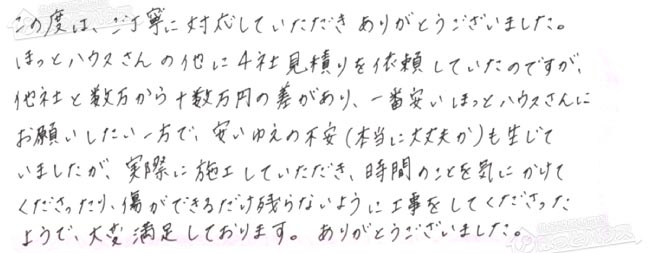 この度は、ご丁寧に対応していただきありがとうございました。
ほっとハウスさんの他に4社見積りを依頼していたのですが、
他社と数万から十数万円の差があり、一番安いほっとハウスさんに
お願いしたい一方で、安いゆえの不安(本当に大丈夫か)も生じて
いましたが、実際に施工していただき、時間のことを気にかけて
くださったり、傷ができるだけ残らないように工事をしてくださった
ようで、大変満足しております。ありがとうございました。